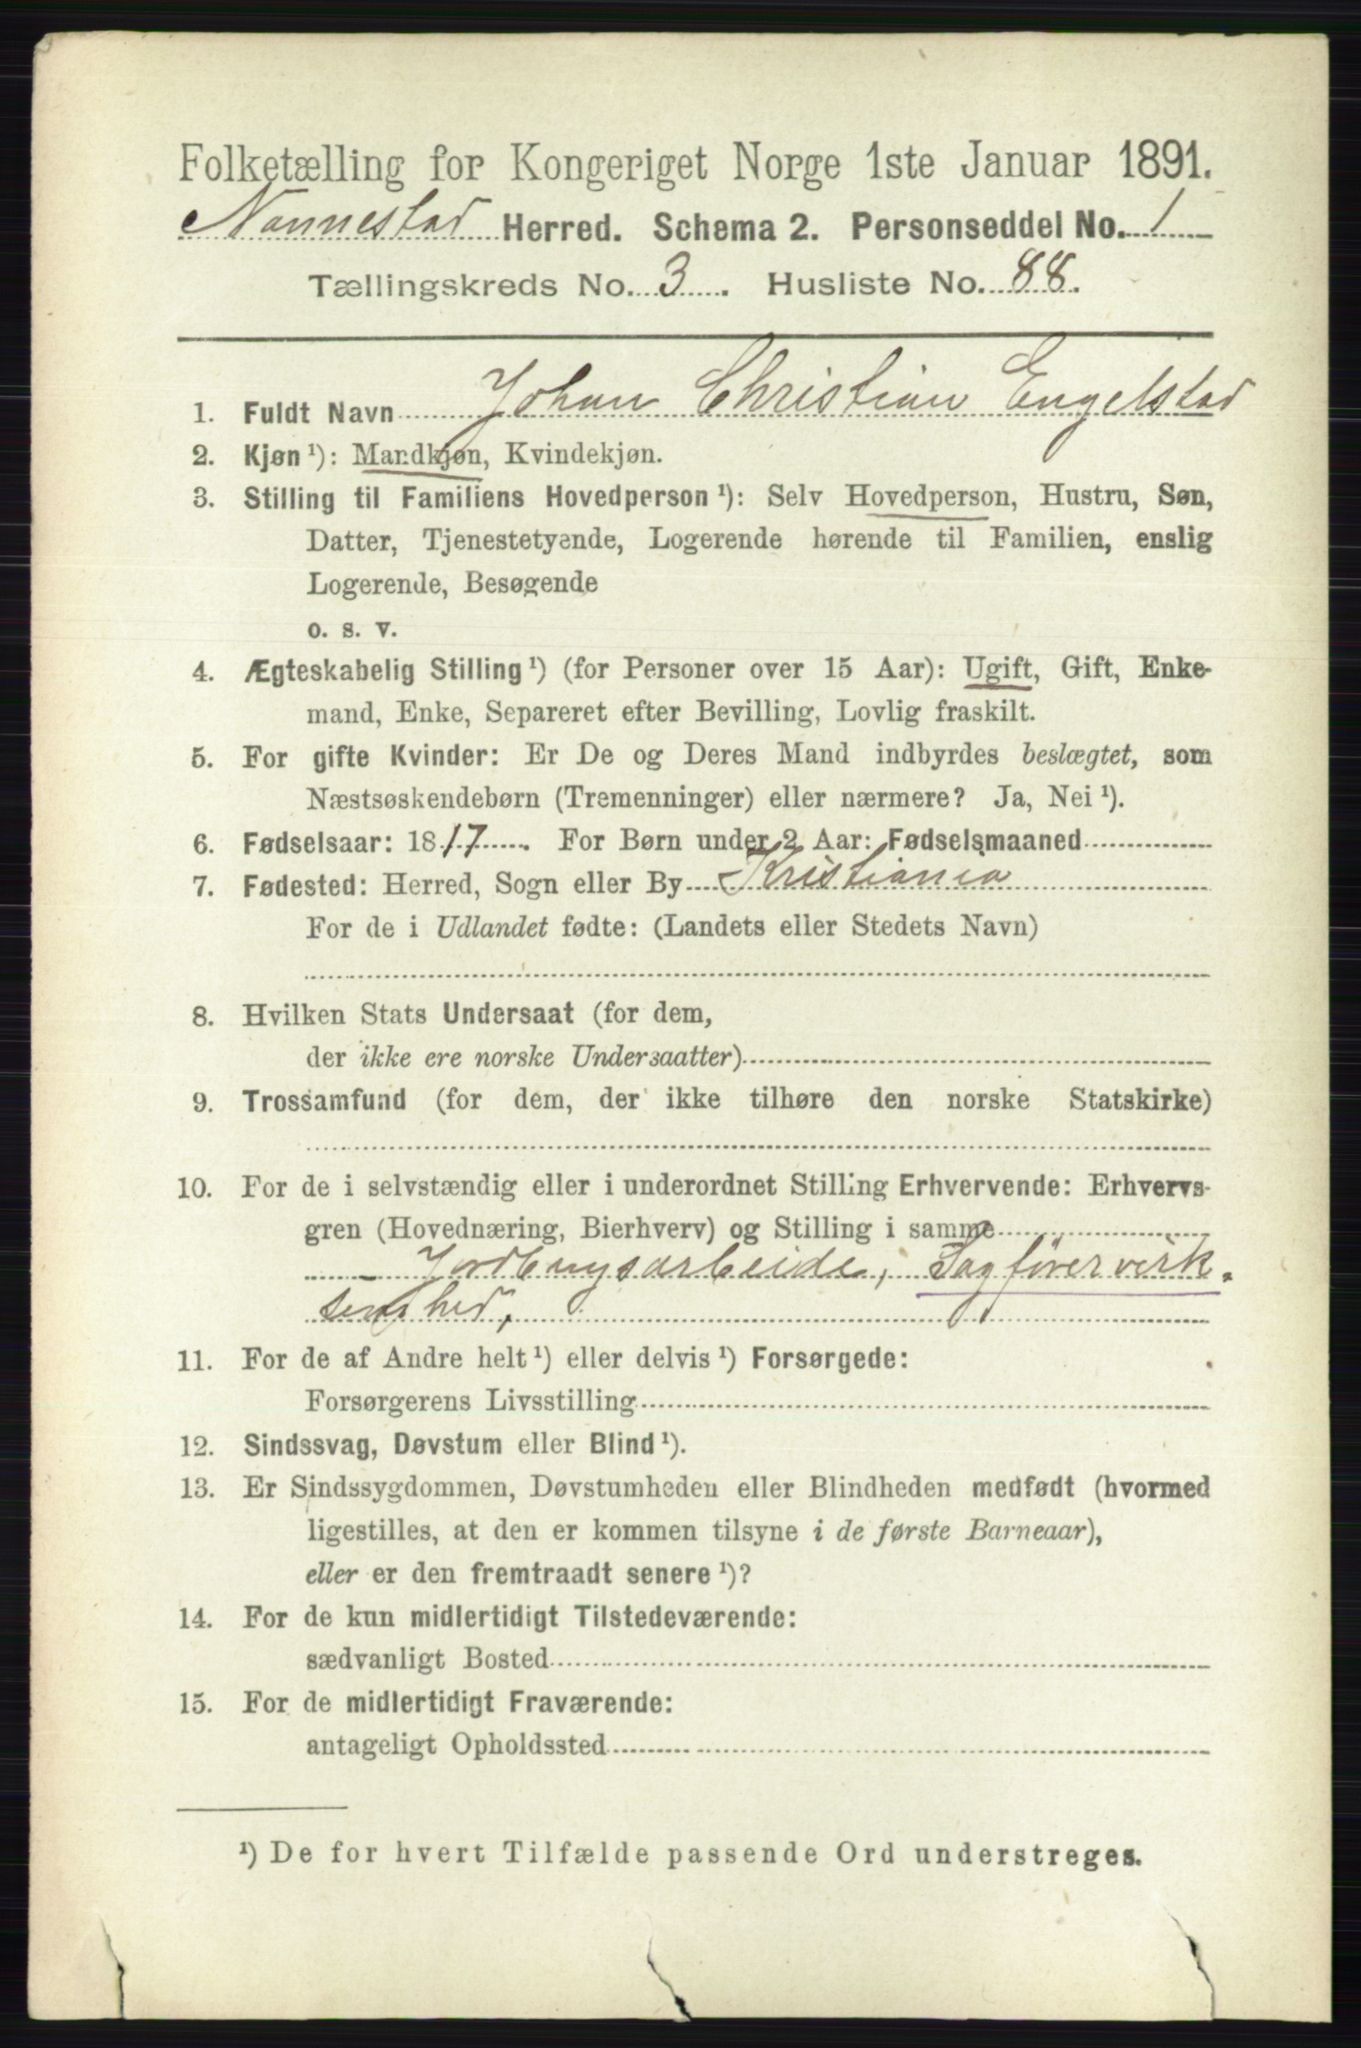 Folketælling for Kongeriget Norge 1ste Januar 1891.
Nannestad Herred. Schema 2. Personseddel No. 1
Tællingskreds No. 3. Husliste No. 88.
1. Fuldt Navn Johan Christian Engelstad
2. Kjøn¹): Mandkjøn, Kvindekjøn.
3. Stilling til Familiens Hovedperson¹): Selv Hovedperson, Hustru, Søn,
Datter, Tjenestetyende, Logerende hørende til Familien, enslig
Logerende, Besøgende
o. s. v.
4. Ægteskabelig Stilling¹) (for Personer over 15 Aar): Ugift, Gift, Enke-
mand, Enke, Separeret efter Bevilling, Lovlig fraskilt.
5. For gifte Kvinder: Er De og Deres Mand indbyrdes beslægtet, som
Næstsøskendebørn (Tremenninger) eller nærmere? Ja, Nei¹).
6. Fødselsaar: 1817. For Børn under 2 Aar: Fødselsmaaned
7. Fødested: Herred, Sogn eller By Kristiania
For de i Udlandet fødte: (Landets eller Stedets Navn)
8. Hvilken Stats Undersaat (for dem,
der ikke ere norske Undersaatter)
9. Trossamfund (for dem, der ikke tilhøre den norske Statskirke)
10. For de i selvstændig eller i underordnet Stilling Erhvervende: Erhvervs-
gren (Hovednæring, Bierhverv) og Stilling i samme
Jordbrugsarbeide, Sagførervirk-
senhed,
11. For de af Andre helt¹) eller delvis¹) Forsørgede:
Forsørgerens Livsstilling
12. Sindssvag, Døvstum eller Blind¹).
13. Er Sindssygdommen, Døvstumheden eller Blindheden medfødt (hvormed
ligestilles, at den er kommen tilsyne i de første Barneaar),
eller er den fremtraadt senere¹)?
14. For de kun midlertidigt Tilstedeværende:
sædvanligt Bosted
15. For de midlertidigt Fraværende:
antageligt Opholdssted
¹) De for hvert Tilfælde passende Ord understreges.